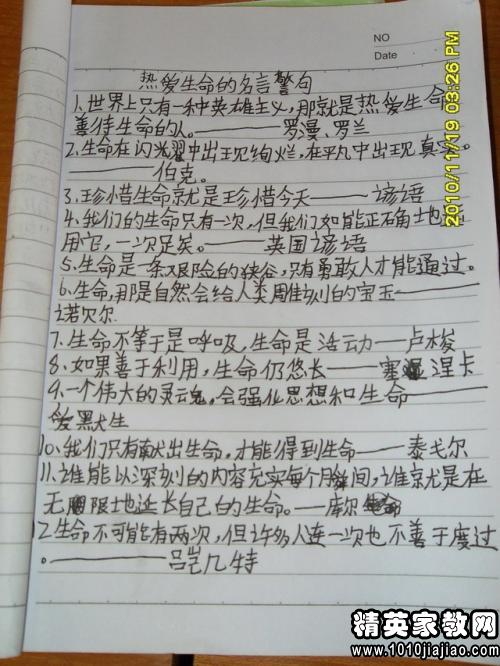 NO
Date
2010/11/19 03:26 PM
热爱生命的名言警句
1、世界上只有一种英雄主义,那就是热爱生命
善待生命的人。——罗漫、罗兰
2、生命在闪光耀中出现绚烂,在平凡中出现真实。
——伯克。
3、珍惜生命就是珍惜今天——谚语
4、我们的生命只有一次,但我们如能正确地运
用它,一次足矣。——英国谚语
5、生命是一条艰险的狭谷,只有勇敢人才能通过。
6、生命,那是自然会给人类周雕刻的宝玉——
诺贝尔
7、生命不等于是呼吸,生命是活动——卢梭
8、如果善于利用,生命仍悠长——塞涅卡
9、一个伟大的灵魂,会强化思想和生命——
爱默生
10、我们只有献出生命,才能得到生命——泰戈尔
11、谁能以深刻的内容充实每个瞬间,谁就是在
无限地延长自己的生命。——库尔
2生命不可能有两次,但许多人连一次也不善于度过
。——吕凯几特
精英家教网
www.1010jiajiao.com